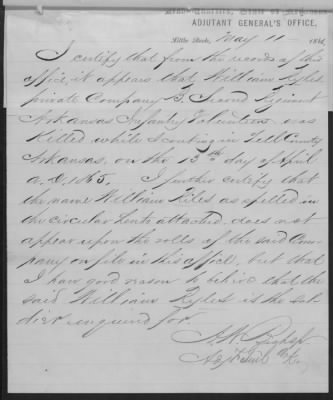 Head-Quarters, State of Arkansas
ADJUTANT GENERAL'S OFFICE,
Little Rock, May 11 186
I certify that from the records of this
office, it appears that William Kyles
private Company B. Second Regiment
Arkansas Infantry Volunteers was
Killed while Scouting in Yell County
Arkansas, on the 13th day of April
A.D. 1865. I further certify that
the name William Kiles as spelled in
the circular hereto attached, does not
appear upon the rolls of the said Com-
pany on file in this office, but that
I have good reason to believe that the
said William Kyles is the sol-
dier enquired for.
A.W. Bishop
Adjt Genl Ark.